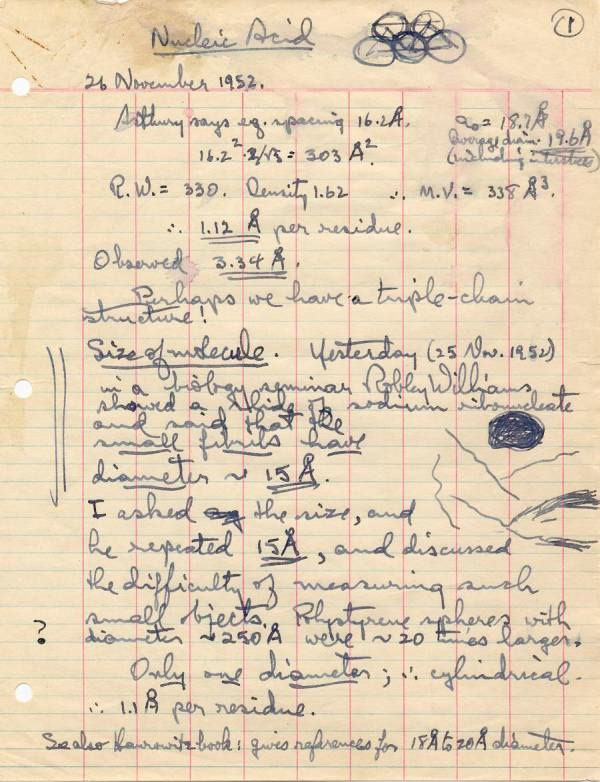 Nucleic Acid
1
26 November 1952.
Astbury says eq. spacing 16.2Å.
a₀ = 18.7Å
Average diam. 19.6Å
(including interstices)
16.2² · 2/√3 = 303 Å².
R.W. = 330. Density 1.62 ∴ M.V. = 338 Å³.
∴ 1.12 Å per residue.
Observed 3.34 Å.
Perhaps we have a triple-chain
structure!
Size of molecule. Yesterday (25 Nov. 1952)
in a biology seminar Robley Williams
showed a slide of sodium ribonucleate
and said that the
small fibrils have
diameter ~ 15 Å.
I asked the size, and
he repeated 15Å, and discussed
the difficulty of measuring such
small objects. Polystyrene spheres with
? diameter ~250Å were ~20 times larger.
Only one diameter; ∴ cylindrical.
∴ 1.1Å per residue.
See also Haurowitz book: gives references for 18Å to 20Å diameter.